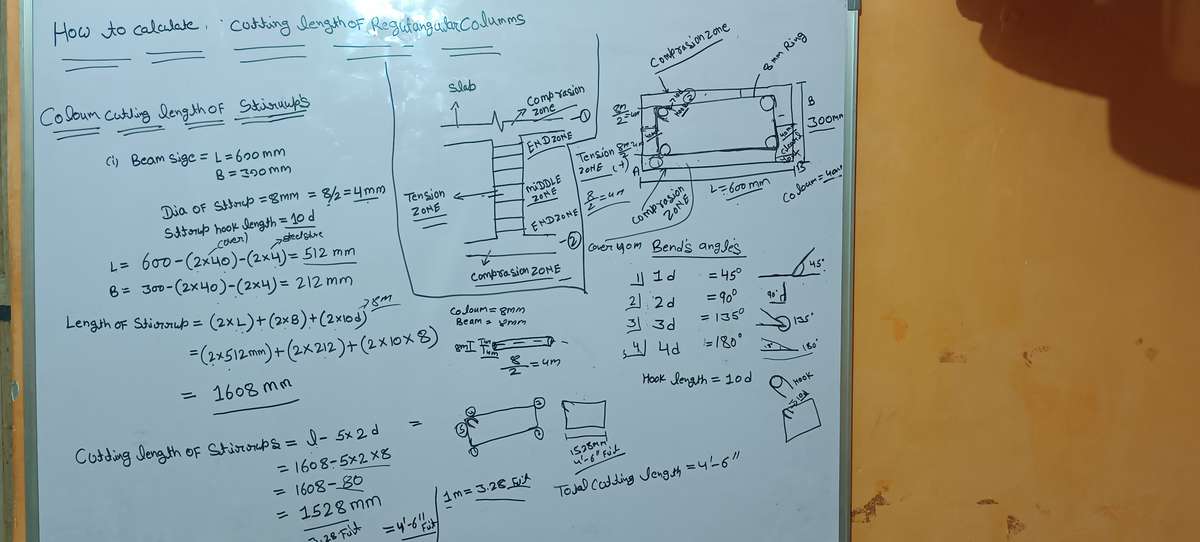 How to calculate. Cutting length of Regutangular Columns
Coloum Cutting length of Stirrup's
(i) Beam Size = L=600mm
B = 300mm
Dia of Stirrup = 8mm = 8/2 = 4mm
Stirrup hook length = 10 d
(cover)
L= 600-(2x40)-(2x4) = 512 mm
B = 300-(2x40)-(2x4) = 212 mm
Length of Stirrup = (2xL)+(2xB)+(2x10d) 8m
=(2x512mm)+(2x212)+(2x10x8)
= 1608 mm
Cutting length of Stirrups = l- 5x2d =
= 1608-5x2x8
= 1608-80
= 1528 mm
3.28 Fuit = 4'-6" Fuit
1m = 3.28 Fuit
Slab
Comprasion
Zone
1
END ZONE
Tension
ZONE
MIDDLE
ZONE
END ZONE
2
Comprasion ZONE
Coloum = 8mm
Beam = 8mm
8m
8/2 = 4m
1528mm
4'-6" Fuit
Total Cutting length = 4'-6"
Comprasion zone
8mm Ring
8m/2 = 4m
2
B
300mm
Tension
ZONE (+)
8/2 = 4m
A
1
B
L=600mm
Comprasion
ZONE
Cover 40m
Bend's angle's
1) 1d = 45°
45°
2) 2d = 90°
90°
3) 3d = 135°
135°
4) 4d = 180°
180°
Hook length = 10d
Hook
10d